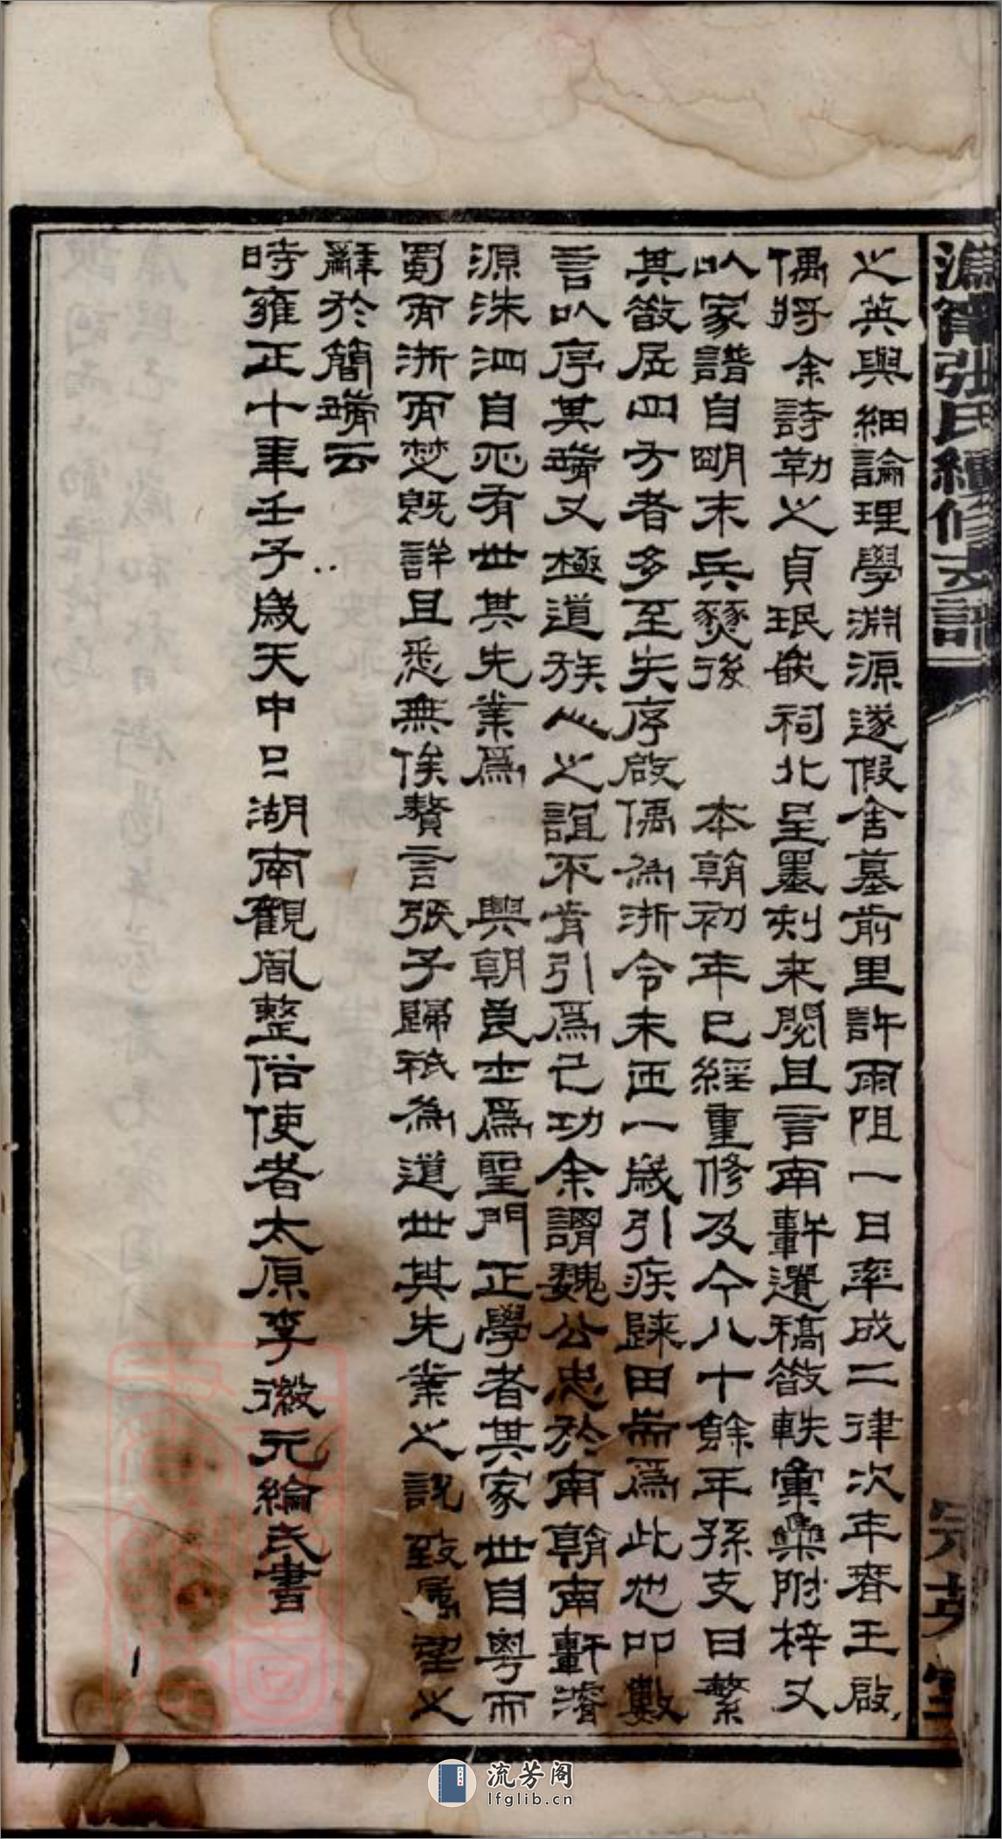 溈甯張氏續修支譜
之英與細論理學淵源遂假舍墓前里許雨阻一日率成二律次年春王啟
儒將余詩勒之貞珉嵌祠北呈墨刻来閱且言南軒遺稿散軼彙集附梓又
以家譜自明末兵燹後 本朝初年已經重修及今八十餘年孫支日繁
其散居四方者多至失序啟儒為浙令未匝一歲引疾歸田耑為此也叩數
言以序其端又極道族人之誼不肯引為己功余謂魏公忠於南朝南軒濬
源洙泗自應有世其先業為 興朝良士為聖門正學者其家世自粤而
蜀而浙而楚既詳且悉無俟贅言張子歸祇為道世其先業之說致屬望之
辭於簡端云
時雍正十年壬子歲天中日湖南觀風整俗使者太原李徽元綸氏書
流芳阁
lfglib.cn